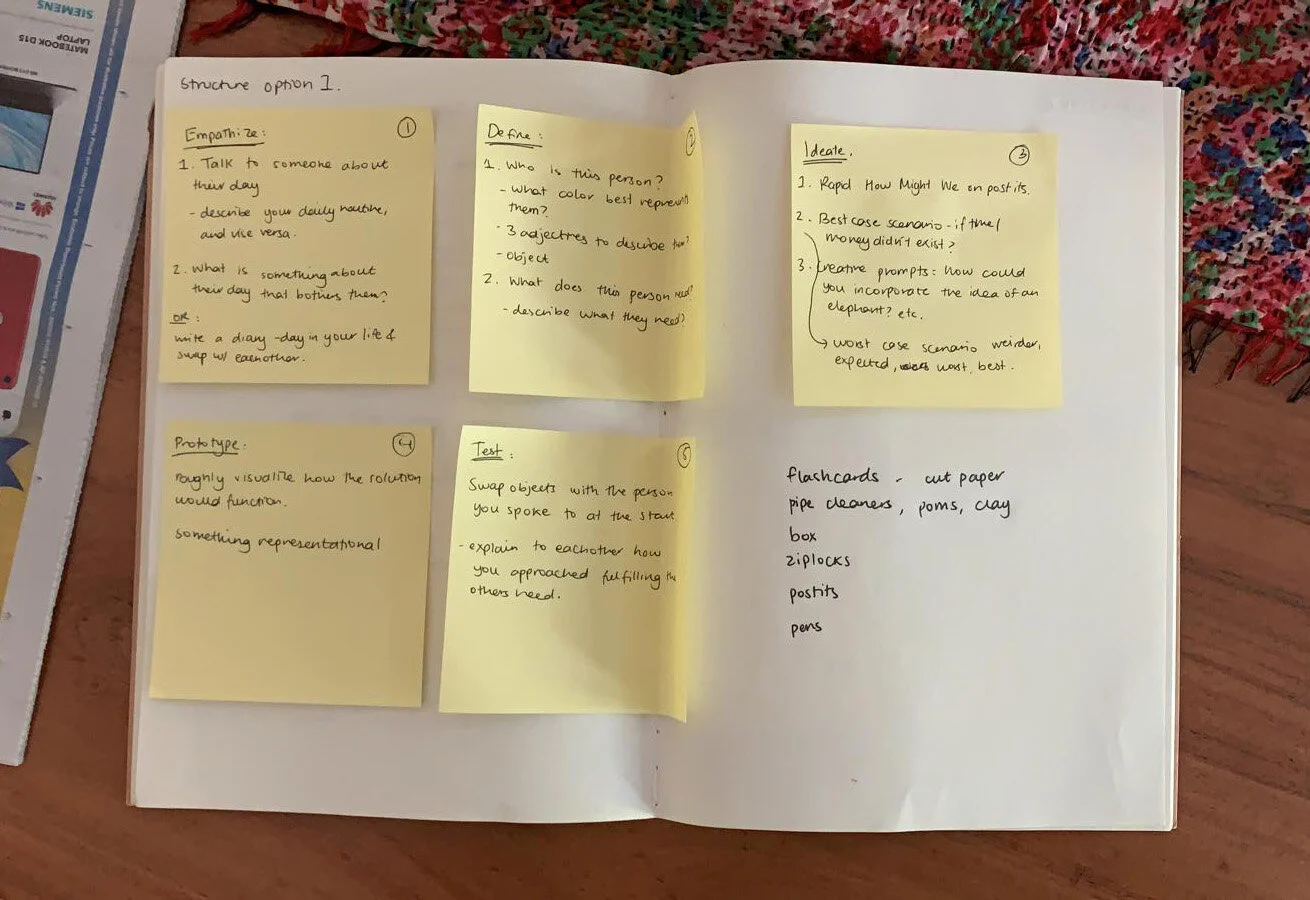 Structure option 1.
Empathize: 1
1. Talk to someone about
their day
- describe your daily routine,
and vise versa.
2. What is something about
their day that bothers them?
OR:
write a diary - day in your life &
swap w/ eachother.
Define: 2
1. Who is this person?
- What color best represents
them?
- 3 adjectives to describe them?
- object
2. What does this person need?
- describe what they need?
Ideate. 3
1. Rapid How Might We on post its.
2. Best case scenario - if time/
money didn't exist?
3. Creative prompts: how could
you incorporate the idea of an
elephant? etc.
→ worst case scenario weirder,
expected, worst, best.
Prototype. 4
roughly visualize how the solution
would function.
something representational
Test: 5
Swap objects with the person
you spoke to at the start
- explain to eachother how
you approached fulfilling the
others need.
flashcards - cut paper
pipe cleaners, poms, clay
box
ziplocks
postits
pens
SIEMENS
MATEBOOK D15
LAPTOP
HUAWEI